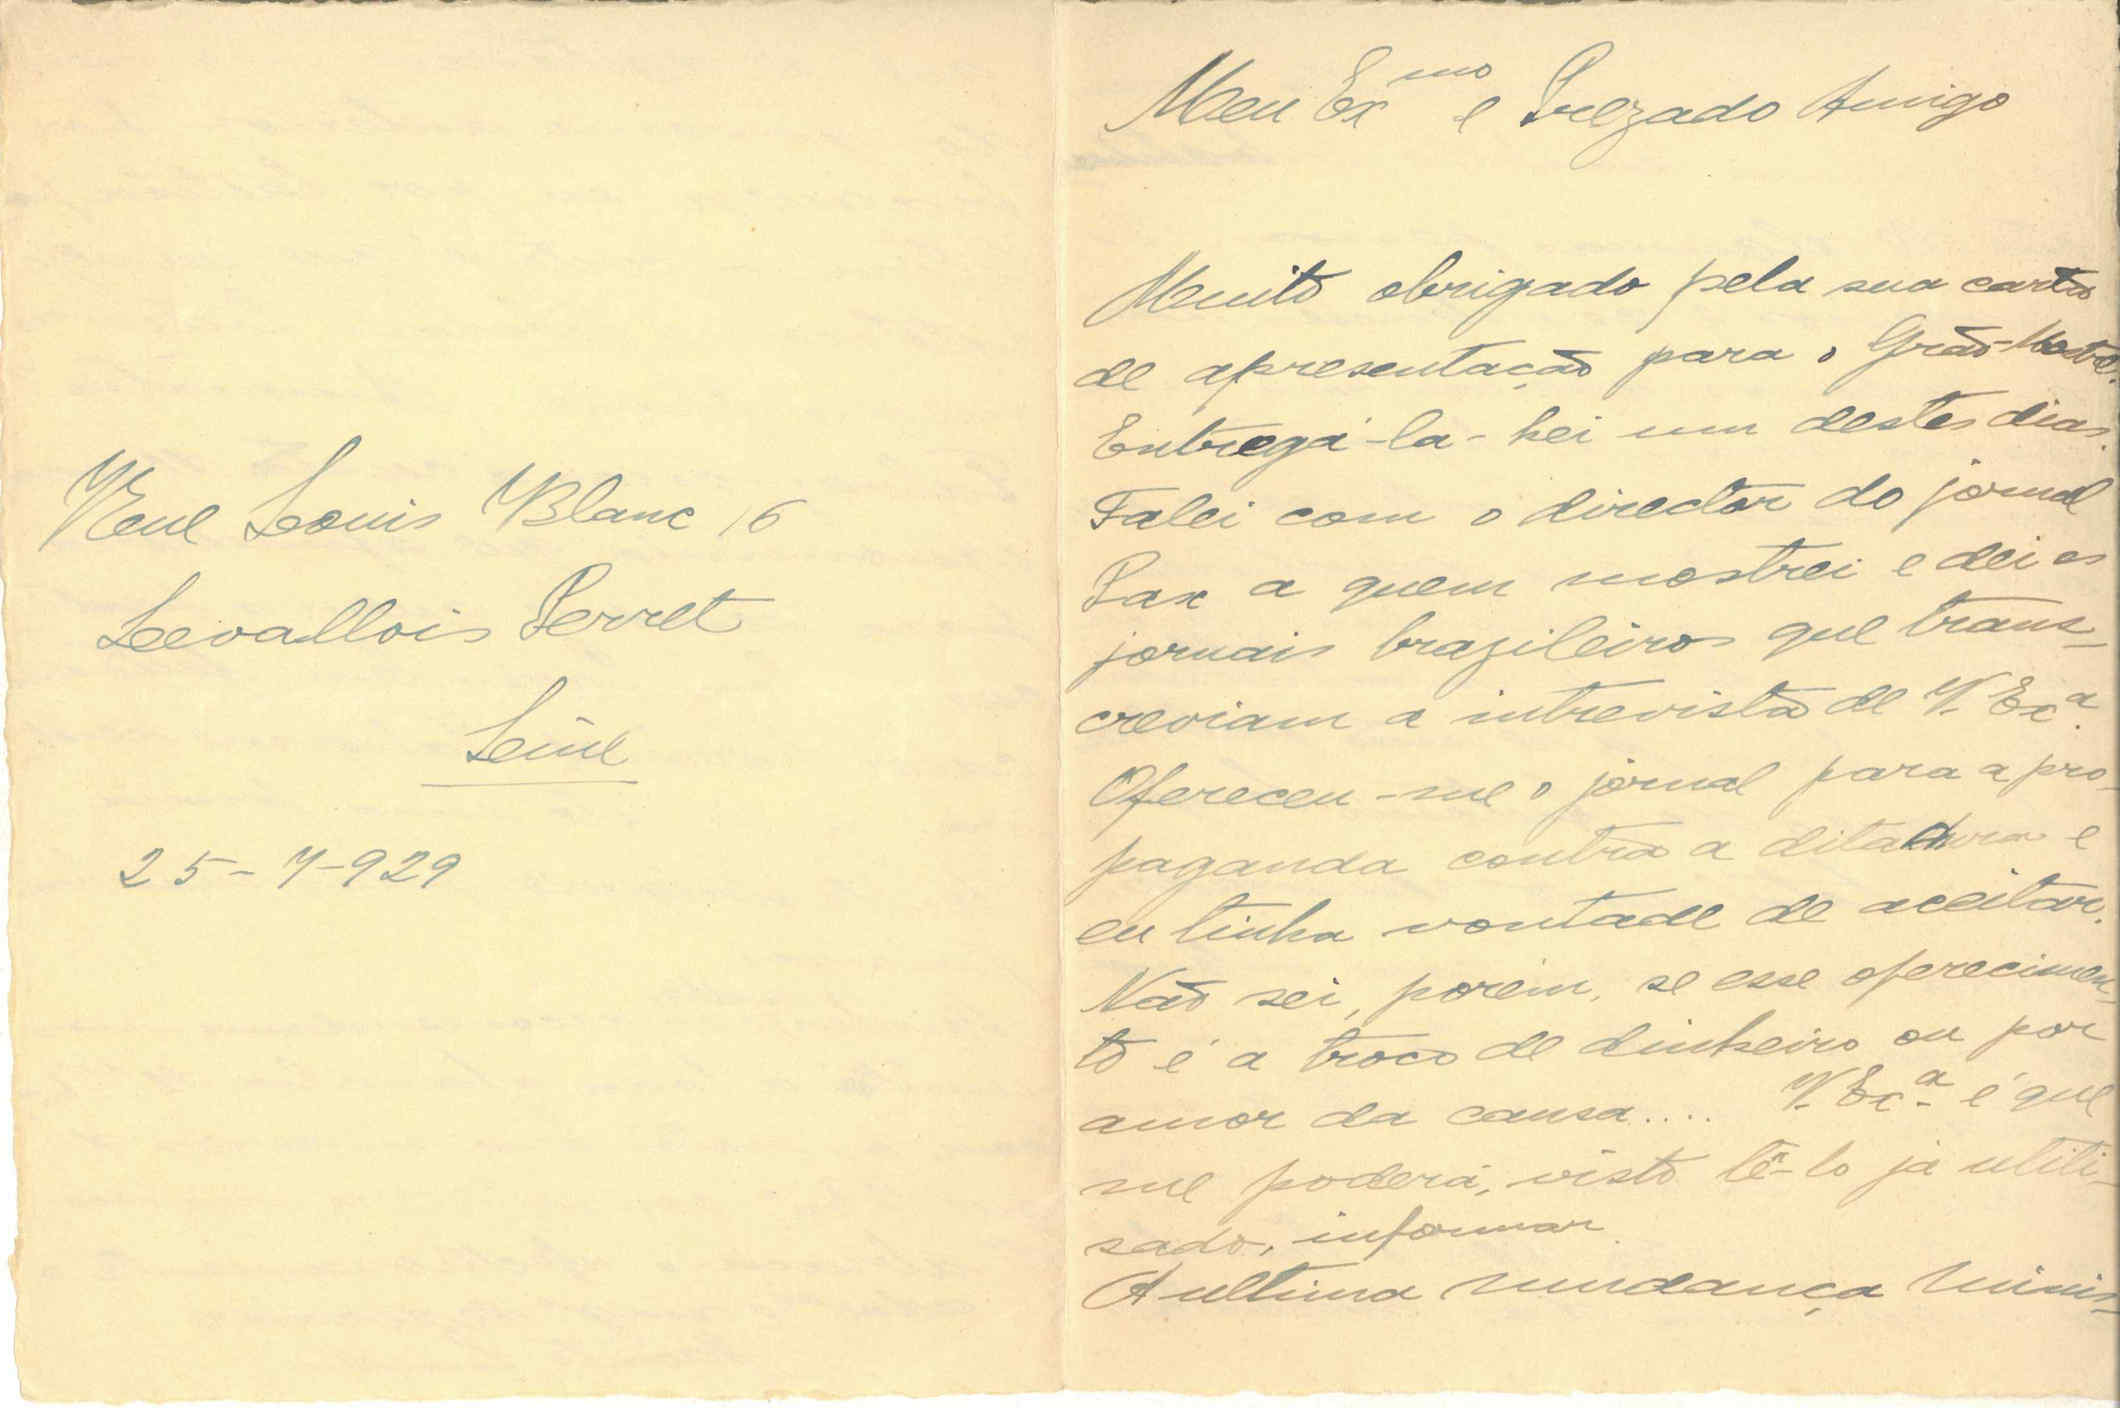 Reue Louis Blanc 16
Levallois Perret
Seine
25-7-929
Meu Exmo e Prezado Amigo
Muito obrigado pela sua carta
de apresentação para o Grão-Mestre.
Entregá-la-hei um destes dias.
Falei com o director do jornal
Pax a quem mostrei e dei os
jornais brazileiros que trans-
creviam a intrevista de V. Exª.
Ofereceu-me o jornal para a pro-
paganda contra a ditadura e
eu tinha vontade de aceitar.
Não sei, porém, se esse oferecimen-
to é a troco de dinheiro ou por
amor da causa.... V. Exª é que
me poderá, visto tê-lo já utili-
sado, informar.
A ultima mudança minis-